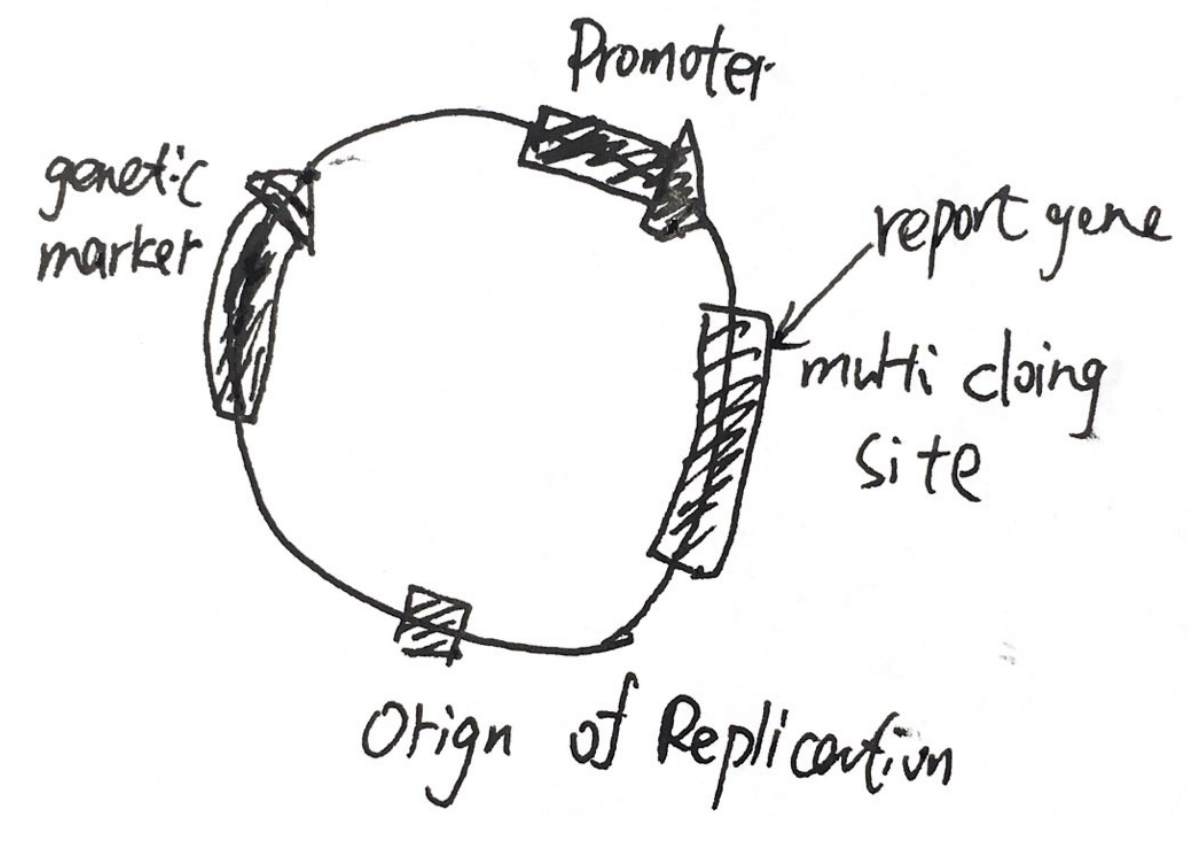 Promoter
genetic
marker
report gene
multi cloing
site
Orign of Replication